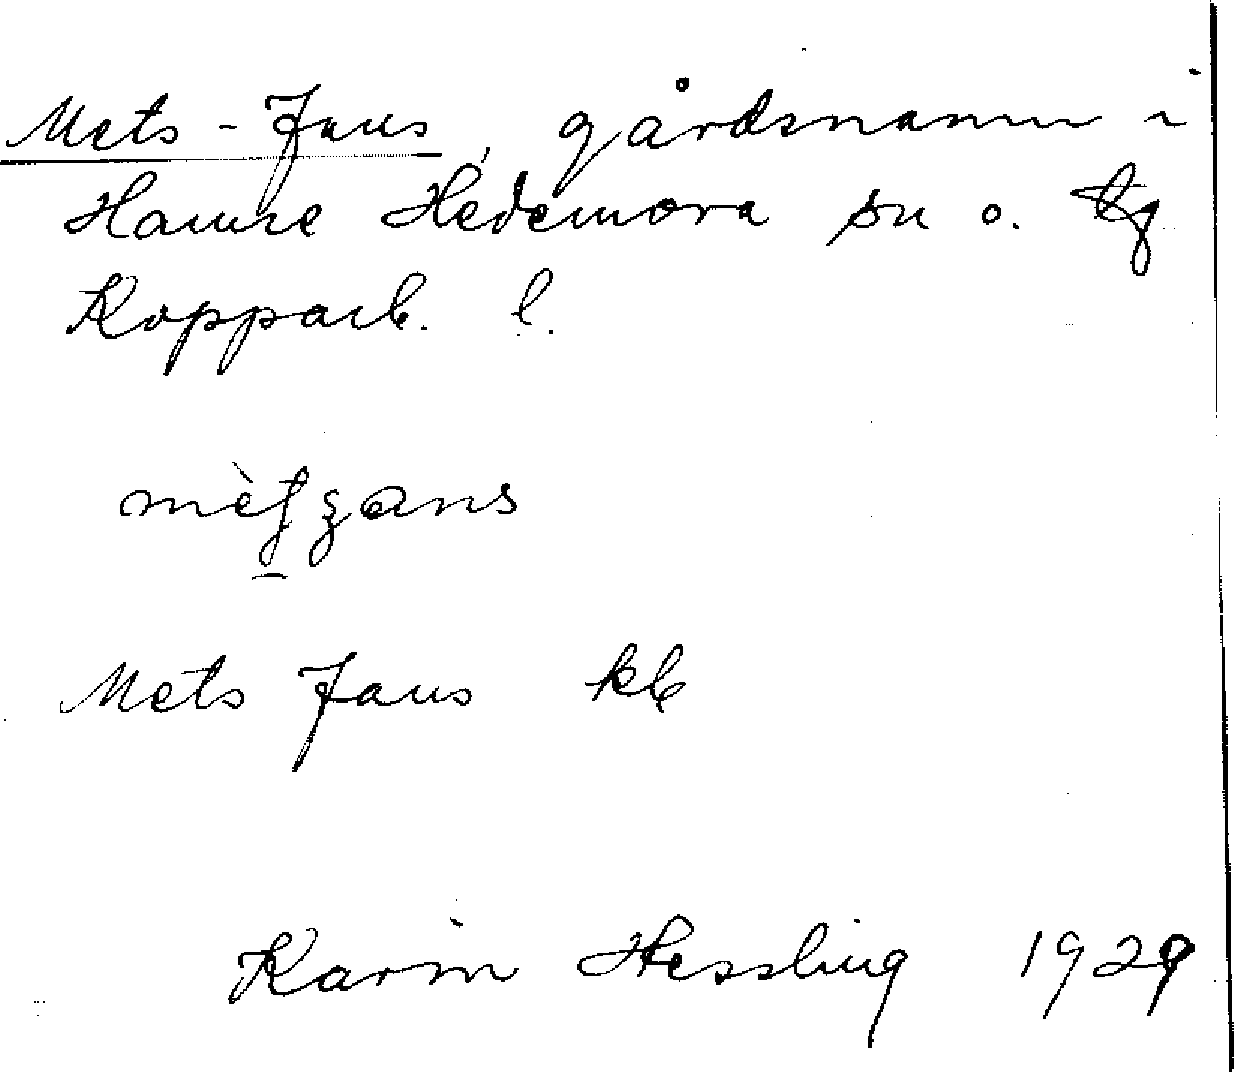 Mets-Jans, gårdsnamn i
Hamre Hedemora sn o. tg
Kopparb. l.
Mets Jans kb
Karin Hessling 1929